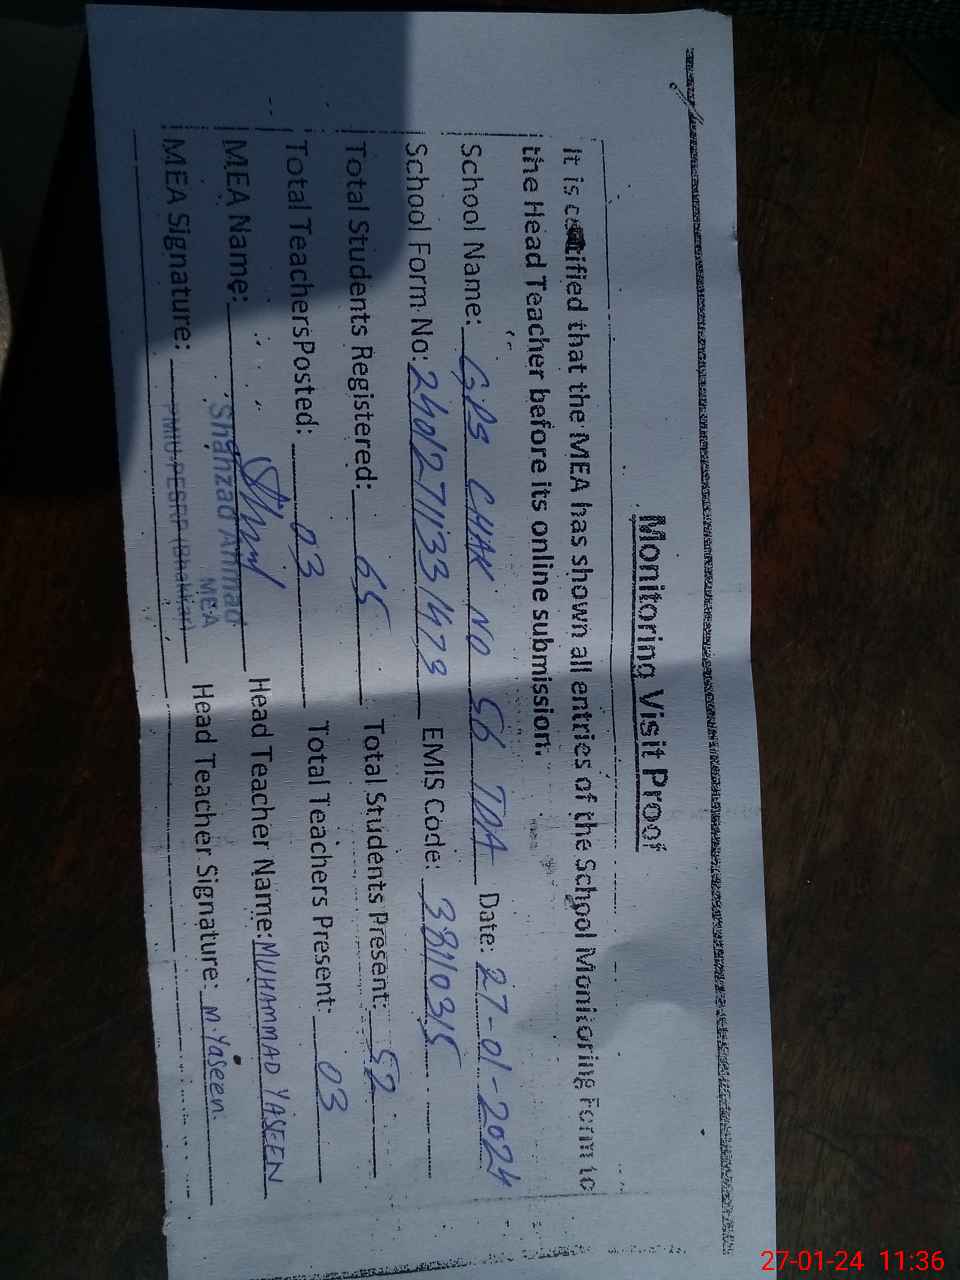 Monitoring Visit Proof
It is certified that the MEA has shown all entries of the School Monitoring Form to
the Head Teacher before its online submission.
School Name: GPS CHAK NO 56 TDA Date: 27-01-2024
School Form No: 24012711331473 EMIS Code: 38110315
Total Students Registered: 65 Total Students Present: 52
Total TeachersPosted: 03 Total Teachers Present: 03
MEA Name: Shahzad Ahmad Head Teacher Name: MUHAMMAD YASEEN
MEA
MEA Signature: PMIU-PESRP (Bhakkar) Head Teacher Signature: M.Yaseen
27-01-24 11:36